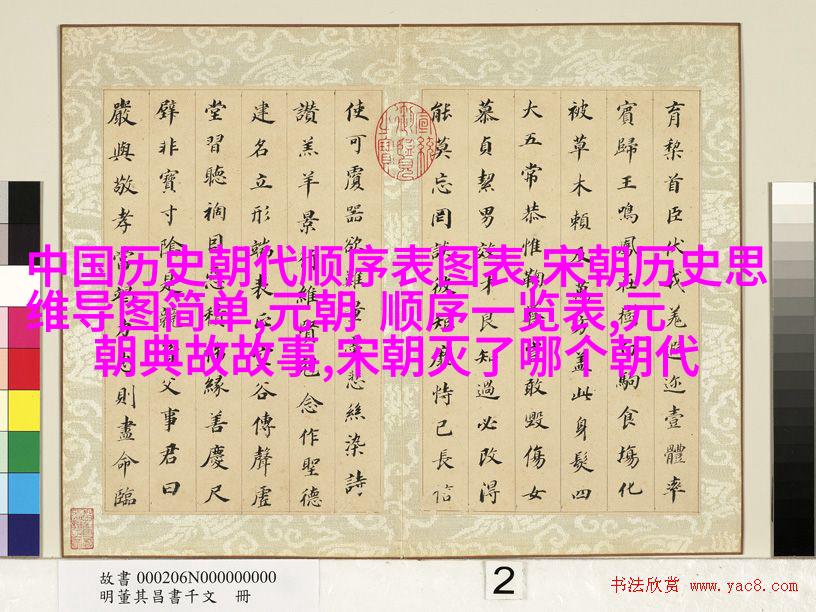 育黎首臣伏戎羌遐迩壹體率
賓歸王鳴鳳在樹白駒食場化
被草木賴及萬方蓋此身髮四
大五常恭惟鞠養豈敢毀傷女
慕貞絜男效才良知過必改得
能莫忘罔談彼短靡恃己長信
使可覆器欲難量墨悲絲染詩
讚羔羊景行維賢克念作聖德
建名立形端表正空谷傳聲虛
堂習聽禍因惡積福緣善慶尺
璧非寶寸陰是競資父事君曰
嚴與敬孝當竭力忠則盡命臨
中国历史朝代顺序表图表,宋朝历史思
维导图简单,元朝 顺序一览表,元
朝典故故事,宋朝灭了哪个朝代
故書 000206N000000000
明董其昌書千文 冊
2
书法欣赏 www.yac8.com